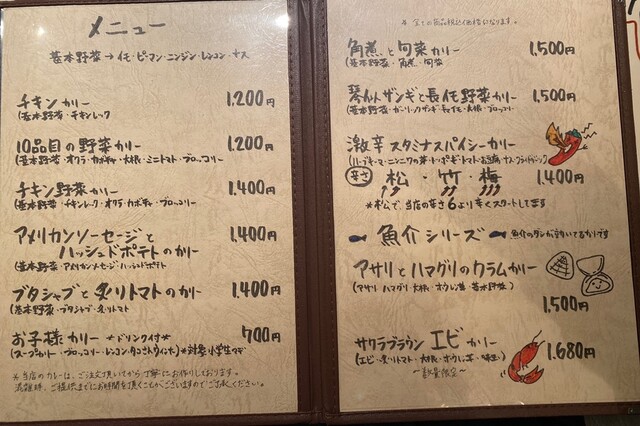 メニュー
基本野菜→イモ・ピーマン・ニンジン・レンコン・ナス
チキンカリー 1,200円
(基本野菜・チキンレッグ
10品目の野菜カリー 1,200円
(基本野菜・オクラ・カボチャ・大根・ミニトマト・ブロッコリー
チキン野菜カリー 1,400円
(基本野菜・チキンレッグ・オクラ・カボチャ・ブロッコリー
アメリカンソーセージと
ハッシュドポテトのカリー 1,400円
(基本野菜・アメリカンソーセージ・ハッシュドポテト
ブタシャブと炙りトマトのカリー 1,400円
(基本野菜・ブタシャブ・炙りトマト
お子様カリー *ドリンク付* 700円
(スープカリー・ブロッコリー・レンコン・タコさんウィンナー) *対象:小学生マデ
*当店のカレーは、ご注文頂いてから丁寧にお作りしております。
混雑時、ご提供までにお時間を頂くことがございますのでご了承ください。
*全ての商品税込価格になります。
角煮と旬菜カリー 1,500円
(基本野菜・角煮・旬菜
ザンギと長イモ野菜カリー 1,500円
(基本野菜・ガーリックザンギ・長イモ・大根・ブロッコリー
激辛スタミナスパイシーカリー
辛さ 松・竹・梅 1,400円
*松で、当店の辛さ6より辛くスタートしてます
魚介シリーズ 魚介のダシが効いてるカリーです
アサリとハマグリのクラムカリー
(アサリ・ハマグリ・大根・オウレン草・基本野菜)
1,500円
サクラブラウンエビカリー 1,680円
(エビ・炙りトマト・大根・オウレン草・
〜数量限定〜